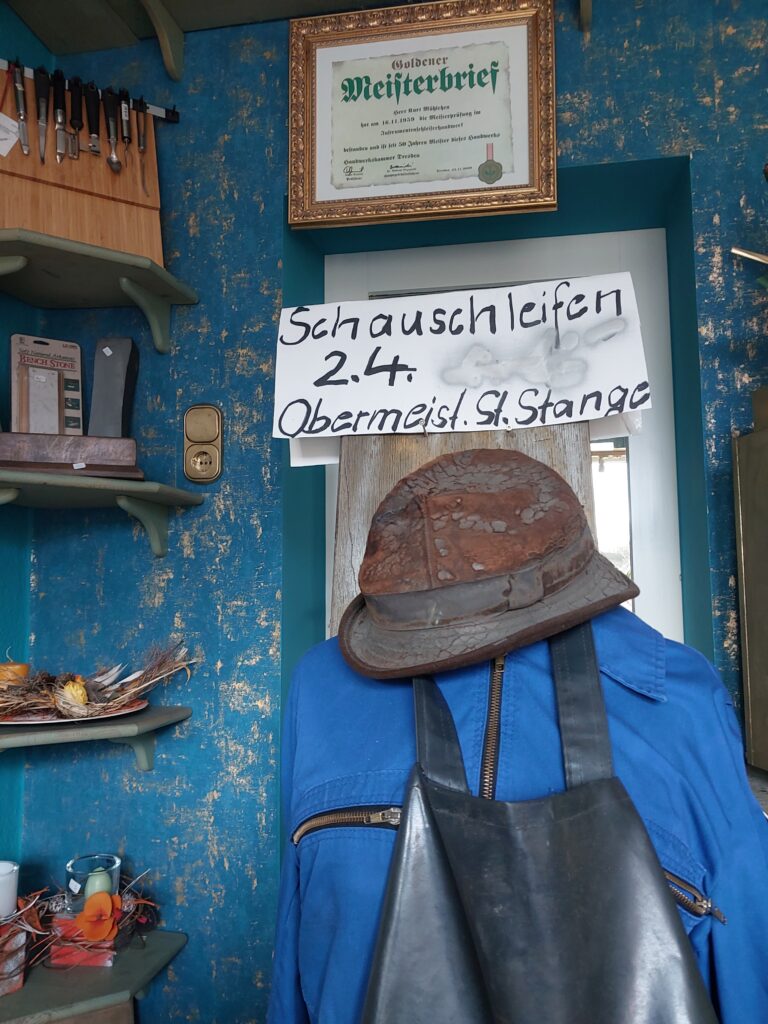 Goldener
Meisterbrief
Herr Kurt Mühlchen
hat am 16.11.1959 die Meisterprüfung im
Instrumentenschleiferhandwerk
bestanden und ist seit 50 Jahren Meister dieses Handwerks
Handwerkskammer Dresden
Schauschleifen
2.4.
Obermeist. St. Stange
BENCH STONE